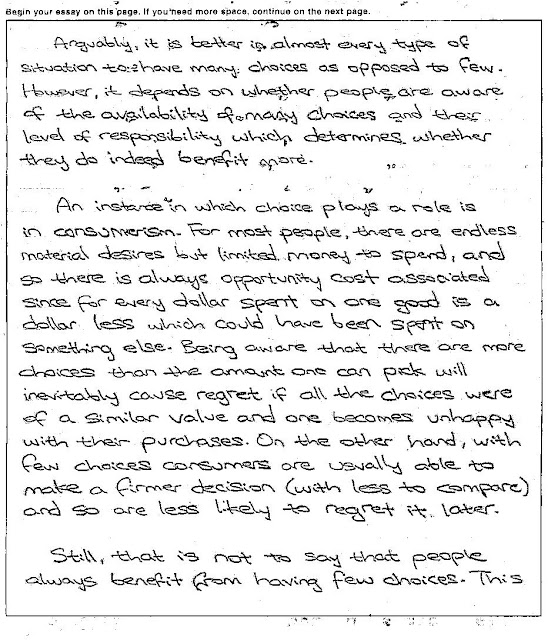 Begin your essay on this page. If you need more space, continue on the next page.
Arguably, it is better in almost every type of
situation to have many choices as opposed to few.
However, it depends on whether people are aware
of the availability of many choices and their
level of responsibility which determines whether
they do indeed benefit more.
An instance in which choice plays a role is
in consumerism. For most people, there are endless
material desires but limited money to spend, and
so there is always opportunity cost associated
since for every dollar spent on one good is a
dollar less which could have been spent on
something else. Being aware that there are more
choices than the amount one can pick will
inevitably cause regret if all the choices were
of a similar value and one becomes unhappy
with their purchases. On the other hand, with
few choices consumers are usually able to
make a firmer decision (with less to compare)
and so are less likely to regret it later.
Still, that is not to say that people
always benefit from having few choices. This